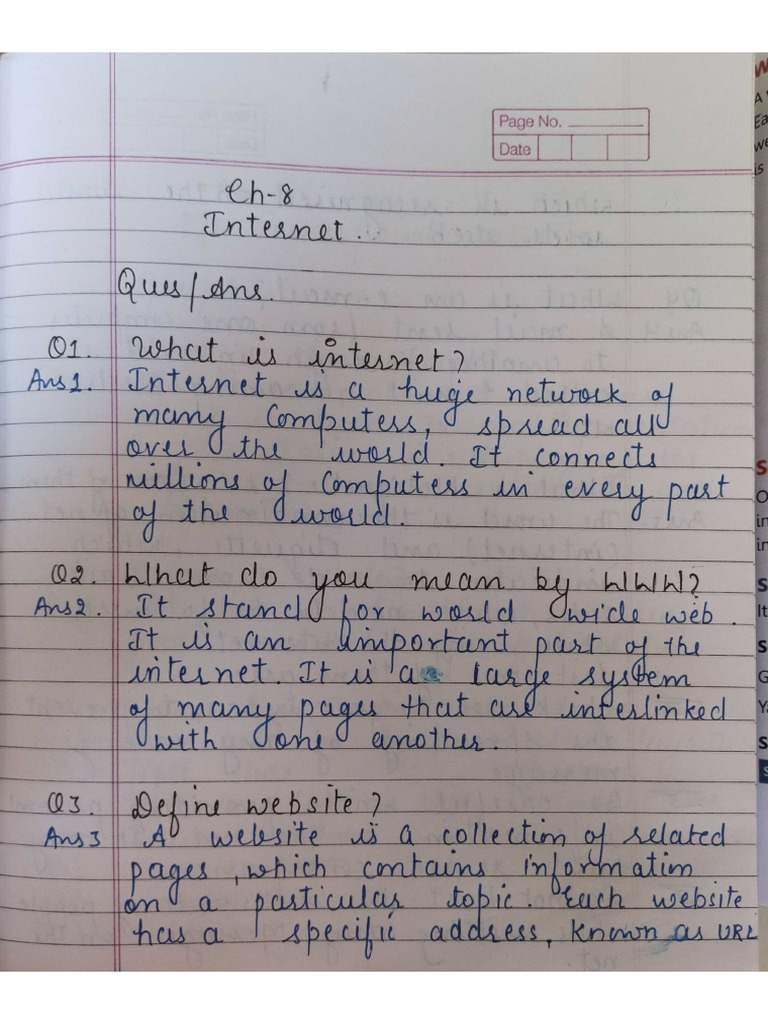 Page No.
Date
Ch-8
Internet.
Ques/Ans.
Q1. What is internet?
Ans1. Internet is a huge network of
many computers, spread all
over the world. It connects
millions of computers in every part
of the world.
Q2. What do you mean by WWW?
Ans2. It stand for world wide web.
It is an important part of the
internet. It is a large system
of many pages that are interlinked
with one another.
Q3. Define website?
Ans3 A website is a collection of related
pages, which contains information
on a particular topic. Each website
has a specific address, known as URL